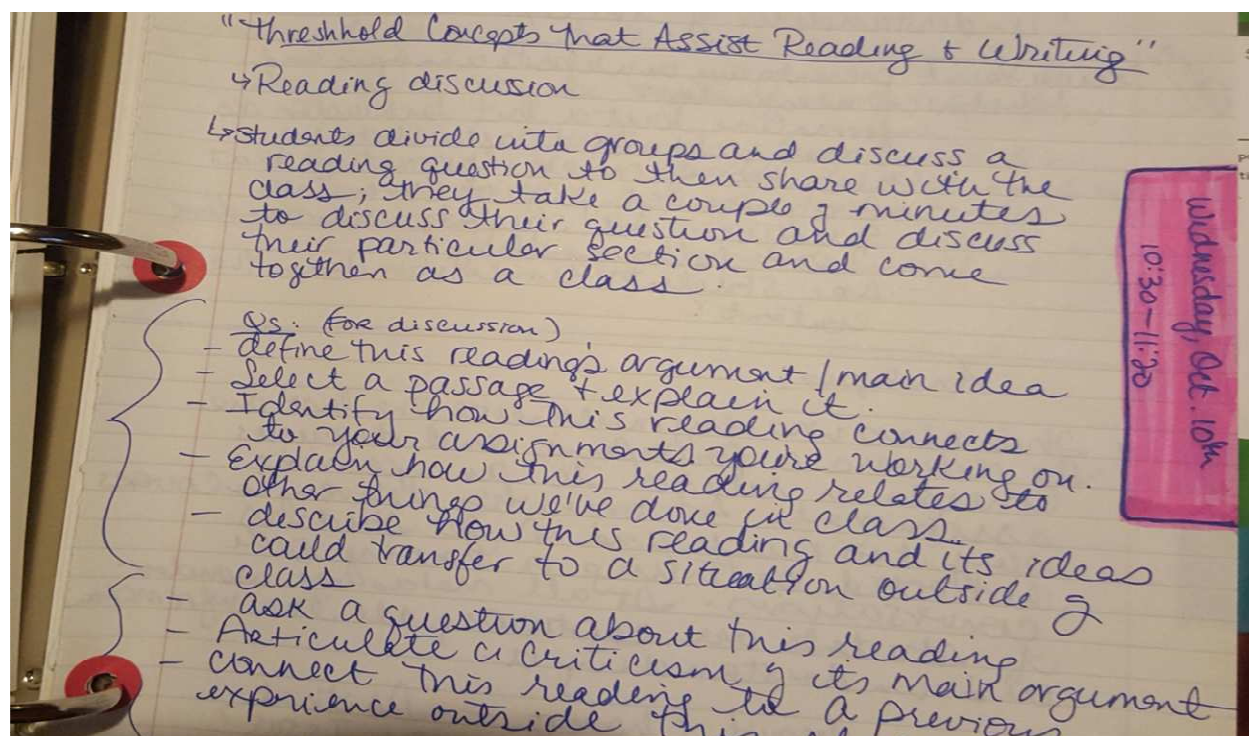 "Threshhold Concepts that Assist Reading & Writing"
↳ Reading discussion
↳ students divide into groups and discuss a
reading question to then share with the
class; they take a couple of minutes
to discuss their question and discuss
their particular section and come
together as a class.
Qs: (for discussion)
- define this reading's argument / main idea
- Select a passage + explain it.
- Identify how this reading connects
to your assignments you're working on.
- Explain how this reading relates to
other things we've done in class.
- describe how this reading and its ideas
could transfer to a situation outside of
class
- ask a question about this reading
- Articulate a criticism of its main argument
- connect this reading to a previous
exprience outside this
Wednesday, Oct. 10th
10:30-11:20